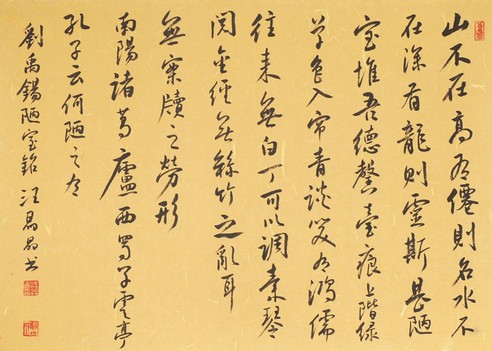 山不在高有僊則名水不
在深有龍則靈斯是陋
室惟吾德馨苔痕上階緑
草色入帘青談笑有鴻儒
往来無白丁可以調素琴
閱金經無絲竹之亂耳
無案牘之勞形
南陽諸葛廬西蜀子雲亭
孔子云何陋之有
劉禹錫陋室銘 汪书